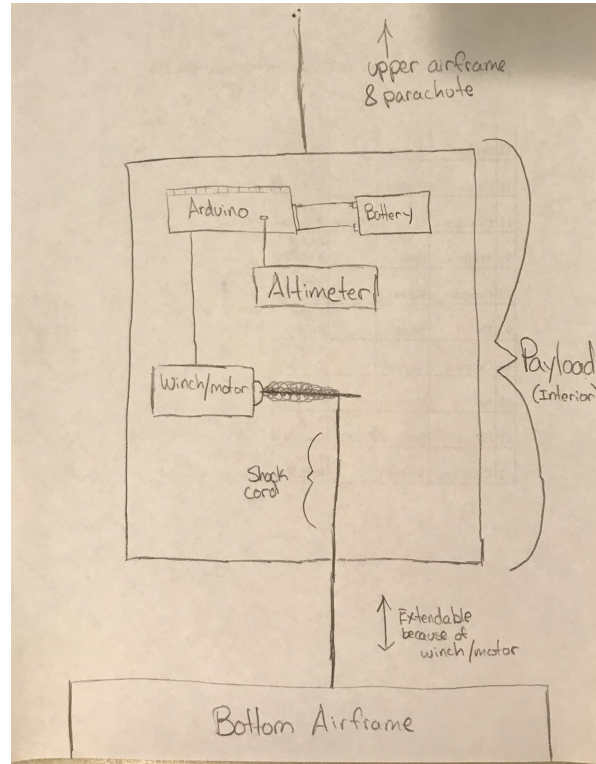 upper airframe
& parachute
Arduino
Battery
Altimeter
Winch/motor
Payload
(Interior)
Shock
cord
Extendable
because of
winch/motor
Bottom Airframe